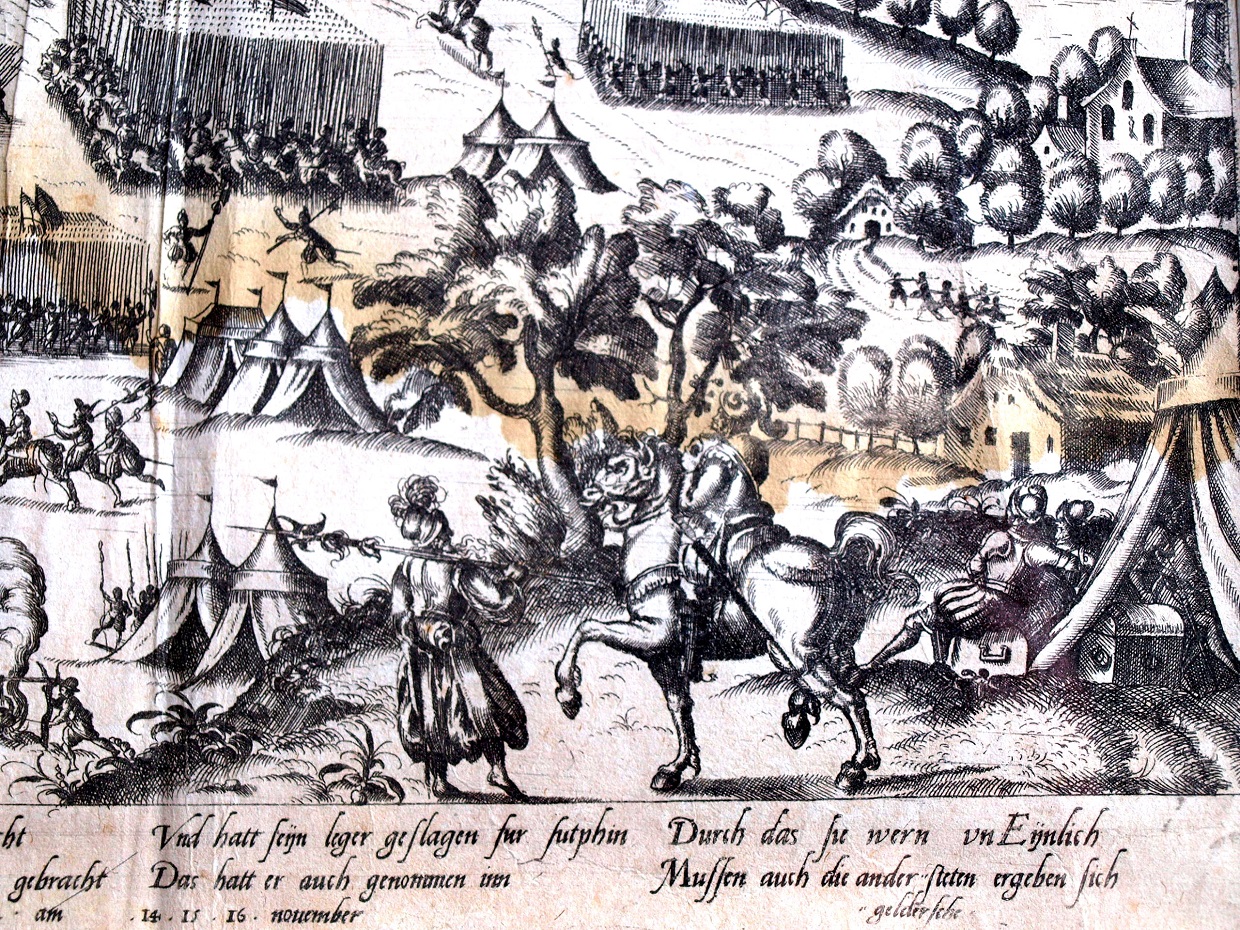 cht
gebracht
am
Vnd hatt seijn leger geslagen fur sutphin
Das hatt er auch genommen inn
. 14 . 15 . 16 . november
Durch das sie wern vn Eijnlich
Mussen auch die ander steten ergeben sich
geldersche